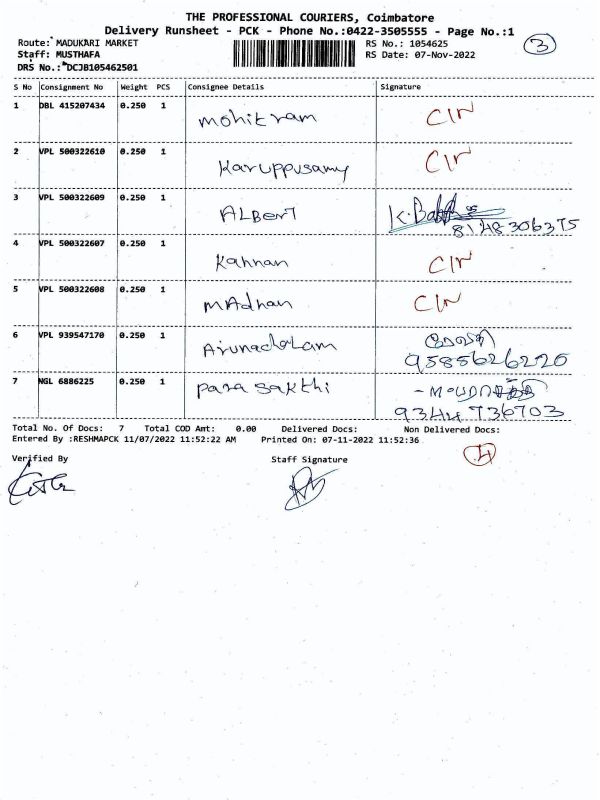 THE PROFESSIONAL COURIERS, Coimbatore
Delivery Runsheet - PCK - Phone No.:0422-3505555 - Page No.:1
Route: MADUKARI MARKET RS No.: 1054625 3
Staff: MUSTHAFA RS Date: 07-Nov-2022
DRS No.:*DCJB105462501
S No Consignment No Weight PCS Consignee Details Signature
1 DBL 415207434 0.250 1 Mohitram CIN
2 VPL 500322610 0.250 1 Karuppusamy CIN
3 VPL 500322609 0.250 1 ALBERT K. 8148306375
4 VPL 500322607 0.250 1 Kannan CIN
5 VPL 500322608 0.250 1 MAdhan CIN
6 VPL 939547170 0.250 1 Arunachalam
9585626226
7 NGL 6886225 0.250 1 Para sakthi
9344736703
Total No. Of Docs: 7 Total COD Amt: 0.00 Delivered Docs: Non Delivered Docs:
Entered By :RESHMAPCK 11/07/2022 11:52:22 AM Printed On: 07-11-2022 11:52:36
Verified By Staff Signature 4